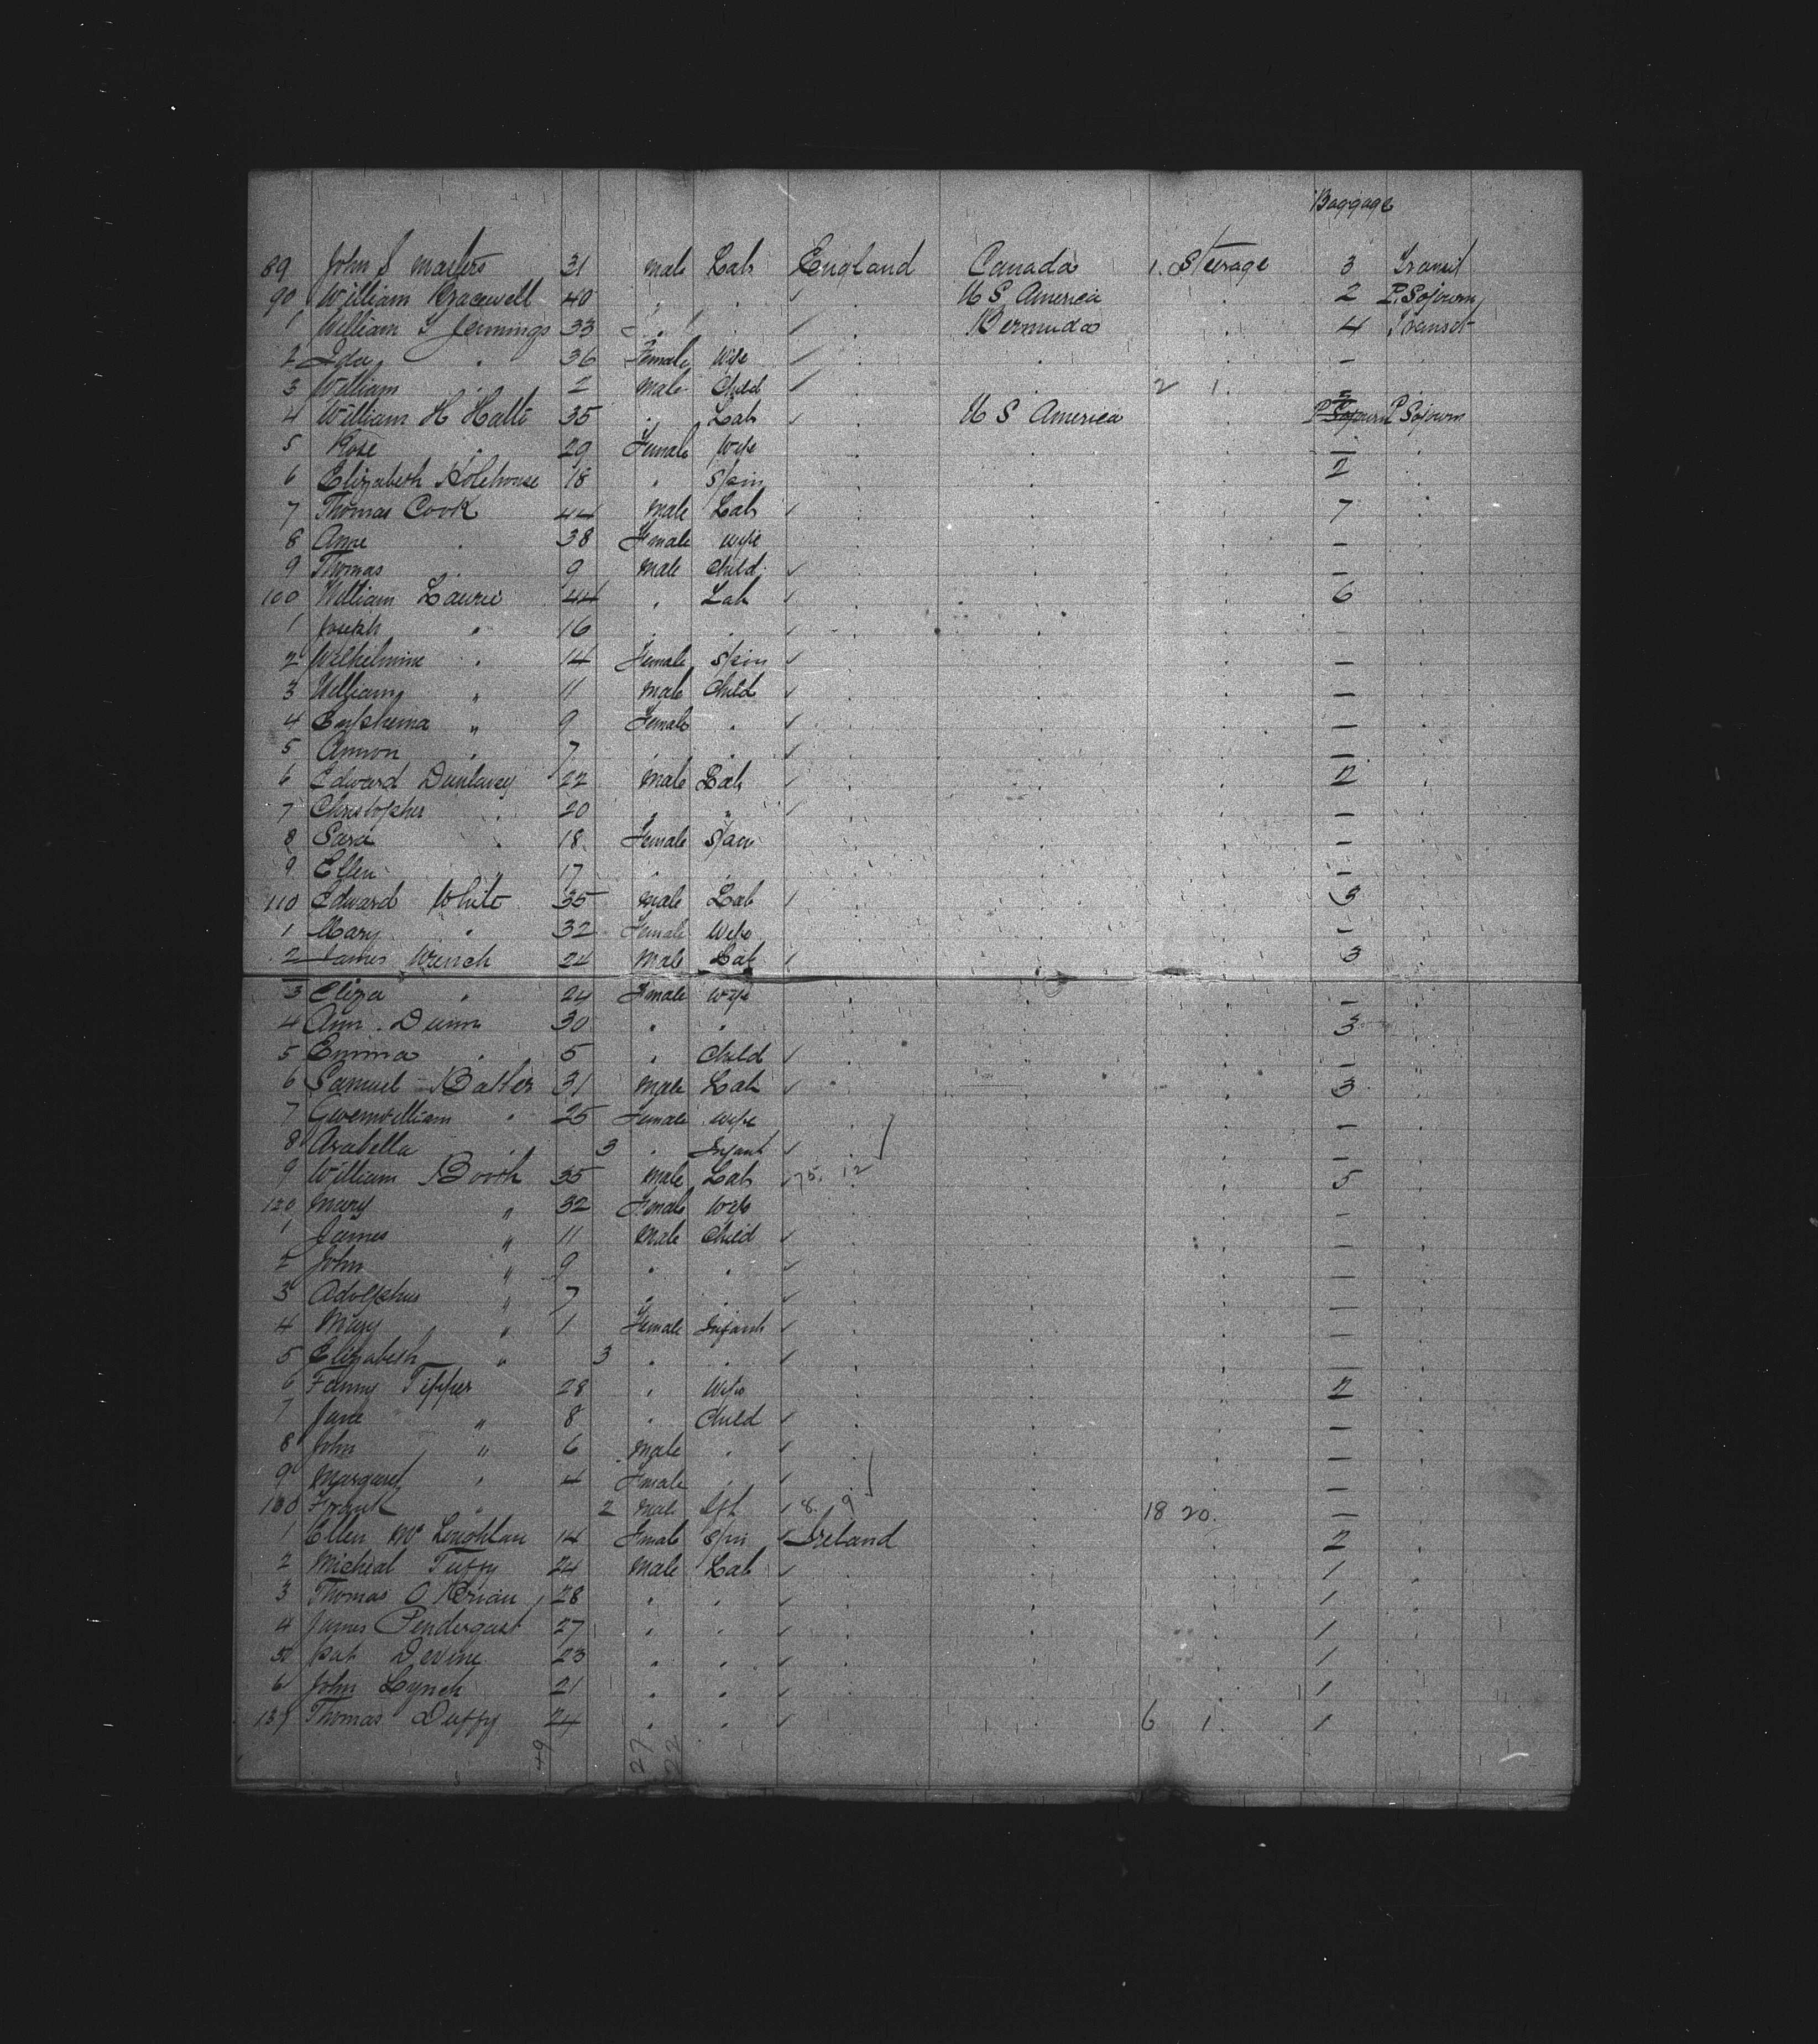 Baggage
89 John S Masters 31 Male Lab England Canada 1. Steerage 3 Transit
90 William Bracewell 40 . . ✓ . U S America . . 2 P. Sojourn
1 William G Jennings 33 . . ✓ . Bermuda . 4 Transit
2 Ida . 36 Female Wife ✓ . . . —
3 William . 2 Male Child ✓ . 2 1. —
4 William H Halls 35 . Lab ✓ . U S America . P Sojourn P Sojourn
5 Rose . 29 Female Wife . . . — .
6 Elizabeth Holehouse 18 . Spin . . . 2 .
7 Thomas Cook 44 Male Lab ✓ . . . 7 .
8 Anne . 38 Female Wife . . . — .
9 Thomas . 9 Male Child ✓ . . . — .
100 William Lawrie 44 . Lab ✓ . . . 6 .
1 Joseph " 16 . . ✓ . . . — .
2 Wilhelmine " 14 Female Spin ✓ . . . — .
3 William " 11 Male Child ✓ . . . — .
4 Eupshema " 9 Female . ✓ . . . — .
5 Annon . 7 . . ✓ . . . — .
6 Edward Dunlavey 22 Male Lab ✓ . . . 2 .
7 Christopher . 20 . " ✓ . . . — .
8 Sara . 18 Female Spin . . . — .
9 Ellen " 17 . . . . . — .
110 Edward White 35 Male Lab ✓ . . . 3 .
1 Mary " 32 Female Wife . . . — .
2 James Wrench 24 Male Lab ✓ . . . 3 .
3 Eliza " 24 Female Wife . . . — .
4 Ann Dunn 30 " . . . . 3 .
5 Emma . 5 . Child ✓ . . . — "
6 Samuel Batter 31 Male Lab ✓ . . . 3 .
7 Gwenwilliam " 25 Female Wife . . . — .
8 Arabella . 3 . Infant ✓ . . . — .
9 William Booth 35 Male Lab ✓ 75. 12 . . 5 .
120 Mary " 32 Female Wife . . . — .
1 James " 11 Male Child ✓ . . . — .
2 John " 9 . . ✓ . . . — .
3 Adolphus " 7 . . ✓ . . . — .
4 Mary " 1 Female Infant ✓ . . . — .
5 Elizabeth " 3 . . ✓ . . . — .
6 Fanny Tipper 28 . Wife . . . 2 .
7 Jane " 8 . Child ✓ . . . — .
8 John " 6 Male . ✓ . . . — .
9 Margaret " 4 Female . ✓ . . . — .
130 Frank " 2 Male Ift ✓ 8. 9 . 18 20. — .
1 Ellen Mc Loughlan 14 Female Spin ✓ Ireland . . 2 .
2 Micheal Tuffy 24 Male Lab ✓ . . . 1 .
3 Thomas O Brian 28 " . ✓ . . . 1 .
4 James Pendergast 27 " . ✓ . . . 1 .
5 Pat Devine 23 " . ✓ . . . 1 .
6 John Lynch 21 " . ✓ . . . 1 .
137 Thomas Duffy 24 " . ✓ . . 6 1. 1 .
49 27 22